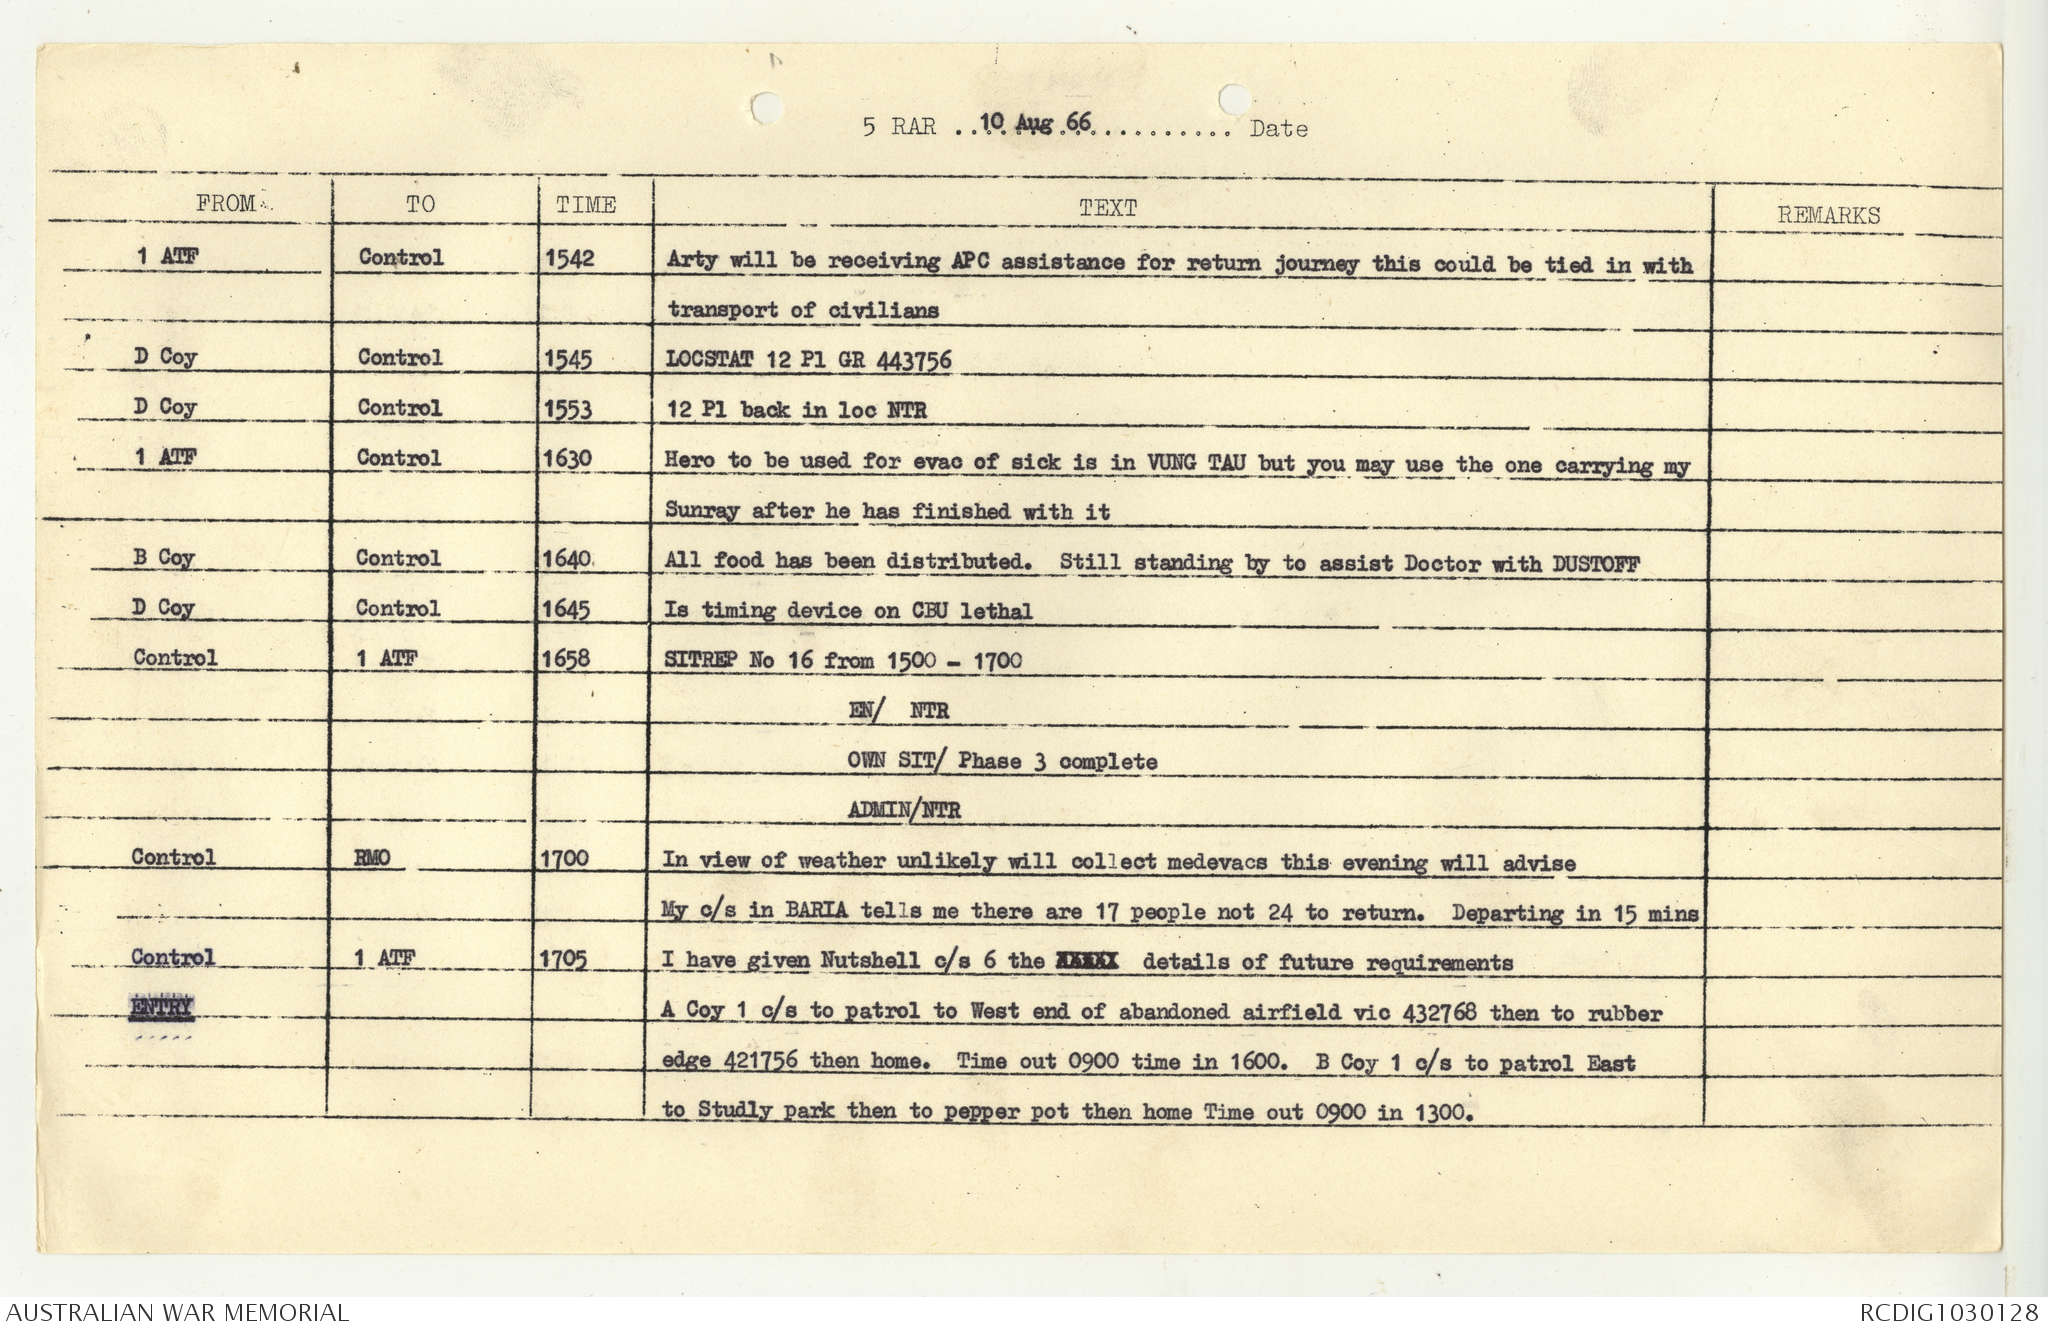 5 RAR ..10 Aug 66.................... Date
FROM TO TIME TEXT REMARKS
1 ATF Control 1542 Arty will be receiving APC assistance for return journey this could be tied in with
transport of civilians
D Coy Control 1545 LOCSTAT 12 Pl GR 443756
D Coy Control 1553 12 Pl back in loc NTR
1 ATF Control 1630 Hero to be used for evac of sick is in VUNG TAU but you may use the one carrying my
Sunray after he has finished with it
B Coy Control 1640 All food has been distributed. Still standing by to assist Doctor with DUSTOFF
D Coy Control 1645 Is timing device on CBU lethal
Control 1 ATF 1658 SITREP No 16 from 1500 - 1700
EN/ NTR
OWN SIT/ Phase 3 complete
ADMIN/NTR
Control RMO 1700 In view of weather unlikely will collect medevacs this evening will advise
My c/s in BARIA tells me there are 17 people not 24 to return. Departing in 15 mins
Control 1 ATF 1705 I have given Nutshell c/s 6 the XXXXX details of future requirements
ENTRY A Coy 1 c/s to patrol to West end of abandoned airfield vic 432768 then to rubber
edge 421756 then home. Time out 0900 time in 1600. B Coy 1 c/s to patrol East
to Studly park then to pepper pot then home Time out 0900 in 1300.
AUSTRALIAN WAR MEMORIAL RCDIG1030128